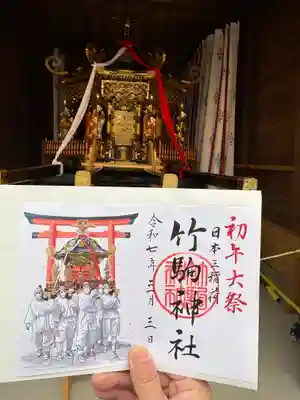 初午大祭
日本三稲荷
竹駒神社
令和七年三月三日